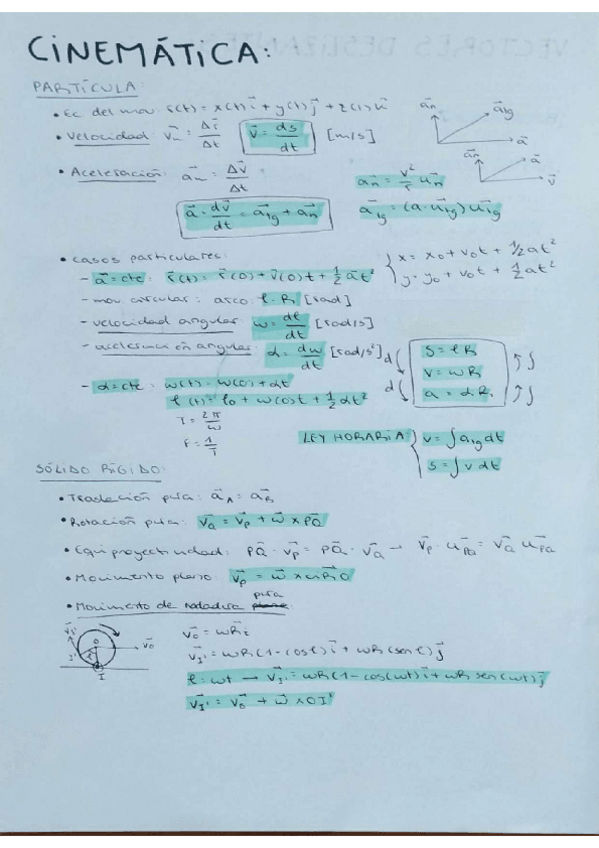 CINEMÁTICA:
PARTÍCULA:
• Ec del mov: r(t) = x(t) i + y(t) j + z(t) k
• Velocidad: v_m = Δr/Δt   v = ds/dt [m/s]
• Aceleración: a_m = Δv/Δt   a_n = v²/r u_n
a = dv/dt = a_tg + a_n   a_tg = (a · u_tg) u_tg
a_n a_tg a
a_n a v
• Casos particulares:
- a = cte: r(t) = r(0) + v(0) t + 1/2 a t²   { x = x0 + v0t + 1/2 at²
y = y0 + v0t + 1/2 at²
- mov circular: arco φ · R [rad]
- velocidad angular: ω = dφ/dt [rad/s]
- aceleración angular: α = dω/dt [rad/s²]
d ( S = φR ) ∫
d ( v = ωR ) ∫
a = α · R
- α = cte: ω(t) = ω(0) + αt
φ(t) = φ0 + ω(0)t + 1/2 αt²
T = 2π/ω
F = 1/T
LEY HORARIA: { v = ∫ a_tg dt
s = ∫ v dt
SÓLIDO RÍGIDO:
• Traslación pura: a_A = a_B
• Rotación pura: v_Q = v_P + ω × PQ
• Equiproyectividad: PQ · v_P = PQ · v_Q → v_P · u_PQ = v_Q u_PQ
• Movimiento plano: v_P = ω × CIR
• Movimiento de rodadura pura:
v_0 = ωR i
v_I' = ωR(1 - cosφ) i + ωR(senφ) j
φ = ωt → v_I' = ωR(1 - cos(ωt)) i + ωR sen(ωt) j
v_I' = v_0 + ω × OI'
v_I' O v_0
I' I